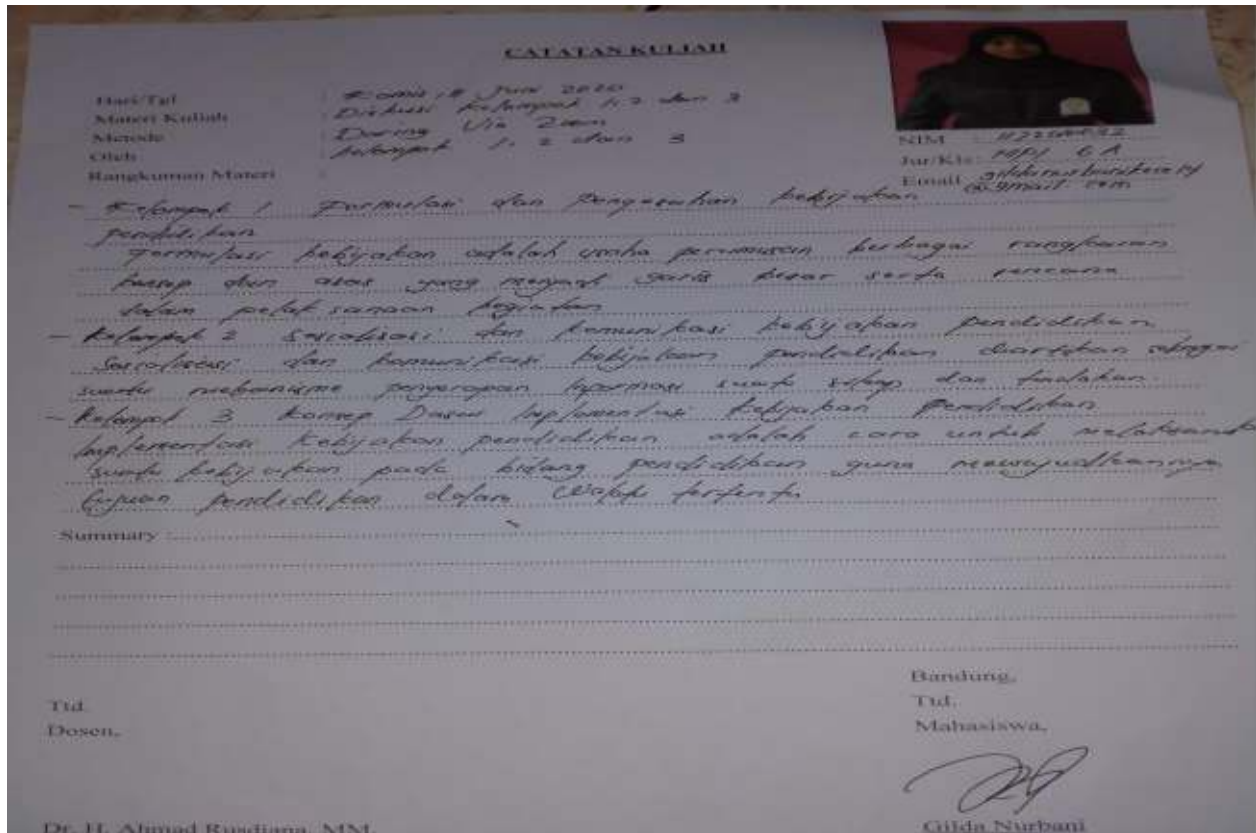 CATATAN KULIAH
Hari/Tgl : Kamis, 18 Juni 2020
Materi Kuliah : Diskusi Kelompok 1, 2 dan 3
Metode : Daring Via Zoom
Oleh : Kelompok 1, 2 dan 3
Rangkuman Materi :
NIM :
Jur/Kls : MPI 6 A
Email :
@gmail.com
- Kelompok 1 Formulasi dan Pengesahan kebijakan
pendidikan
Formulasi kebijakan adalah usaha perumusan berbagai rangkaian
konsep dan asas yang menjadi garis besar serta rencana
dalam pelaksanaan kegiatan
- Kelompok 2 Sosialisasi dan komunikasi kebijakan pendidikan
Sosialisasi dan komunikasi kebijakan pendidikan diartikan sebagai
suatu mekanisme penyerapan informasi suatu sikap dan tindakan.
- Kelompok 3 Konsep Dasar Implementasi Kebijakan Pendidikan
Implementasi kebijakan pendidikan adalah cara untuk
suatu kebijakan pada bidang pendidikan guna mewujudkannya
tujuan pendidikan dalam waktu tertentu
Summary :
Bandung,
Ttd.
Mahasiswa,
Ttd.
Dosen,
Dr. H. Ahmad Rusdiana, MM.
Gilda Nurbani